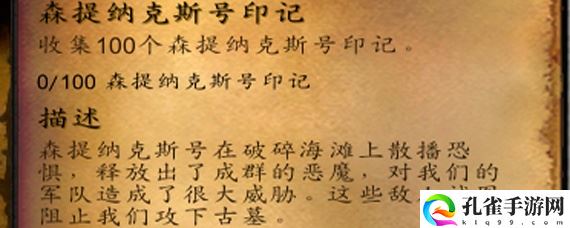 森提纳克斯号印记
收集100个森提纳克斯号印记。
0/100 森提纳克斯号印记
描述
森提纳克斯号在破碎海滩上散播恐
惧，释放出了成群的恶魔，对我们的
军队造成了很大威胁。这些敌
阻止我们攻下古墓。
孔雀手游网
klq99.com